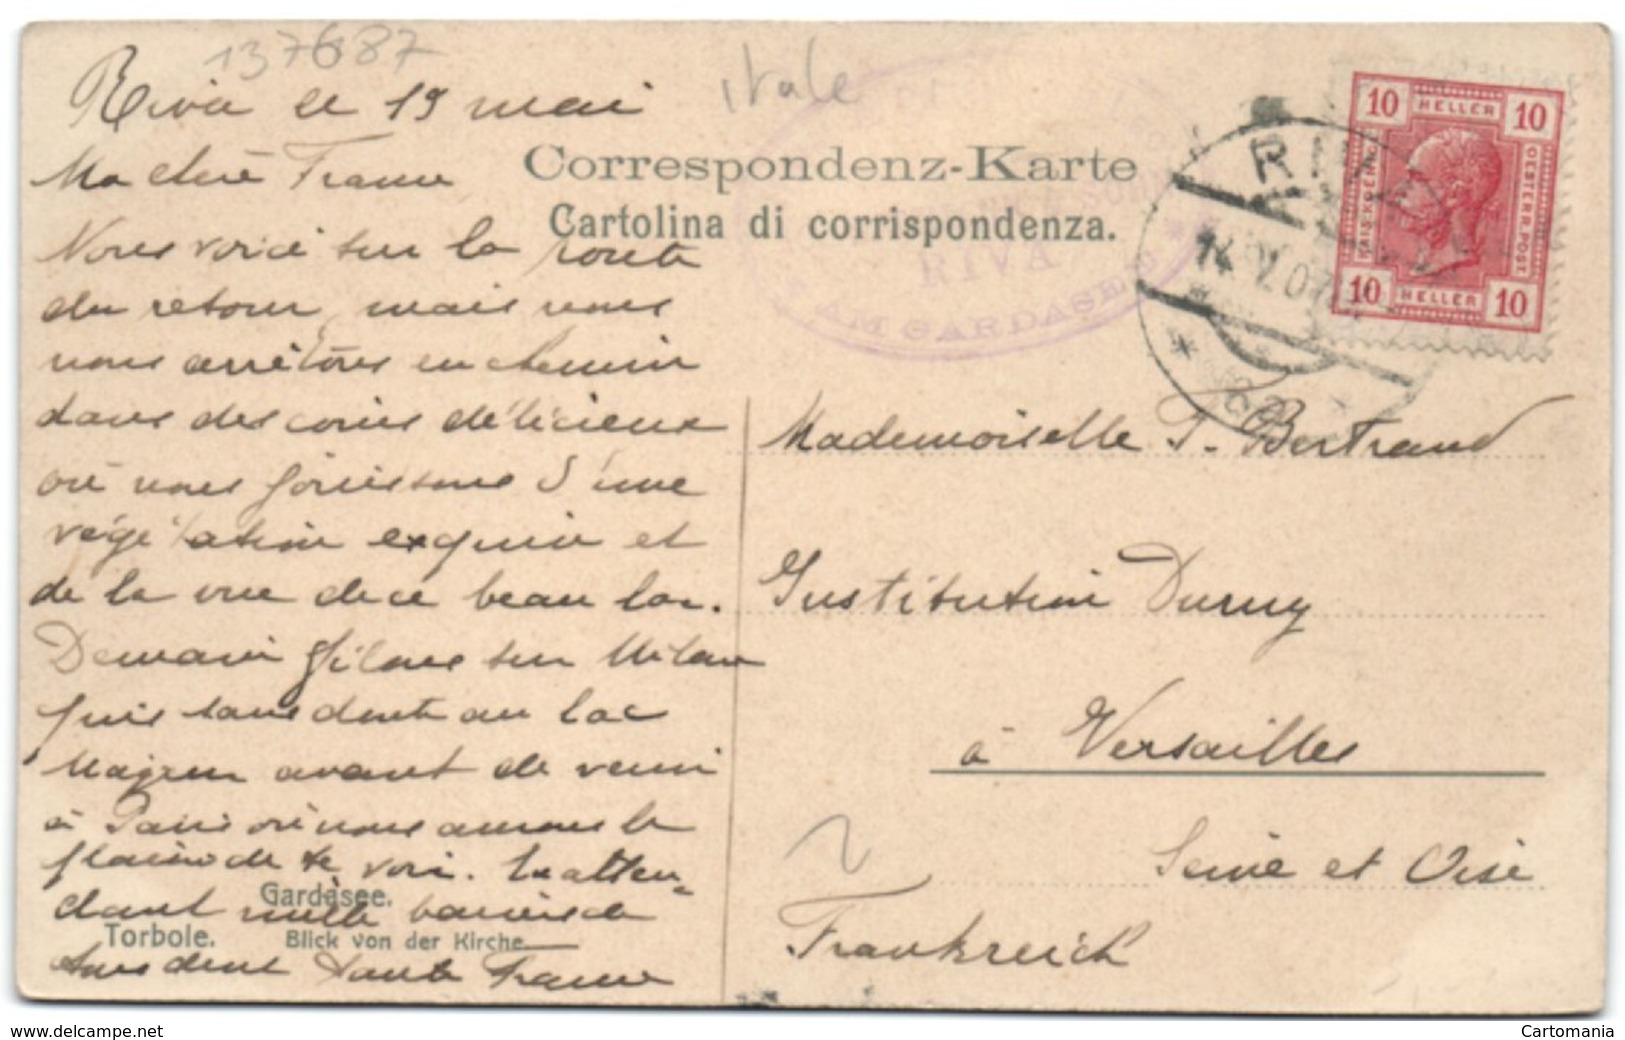 137687
itale
Riva le 19 mai
Ma chère France
Nous voici sur la route
du retour, mais nous
nous arrêtons en chemin
dans des coins délicieux
où nous jouissons d'une
végétation exquise et
de la vue de ce beau lac.
Demain filons sur Milan
puis sans doute au lac
Majeur avant de venir
à Paris où nous aurons le
plaisir de te voir. En atten-
dant mille baisers de
tante France
Gardasee.
Torbole. Blick von der Kirche
Correspondenz-Karte
Cartolina di corrispondenza.
RIVA
AM GARDASEE
RIVA
14 V 07
10 HELLER 10
KAIS. KOENIGL.
OESTERR. POST
10 HELLER 10
Mademoiselle F. Bertrand
Institution Duruy
à Versailles
Seine et Oise
Frankreich
www.delcampe.net
Cartomania